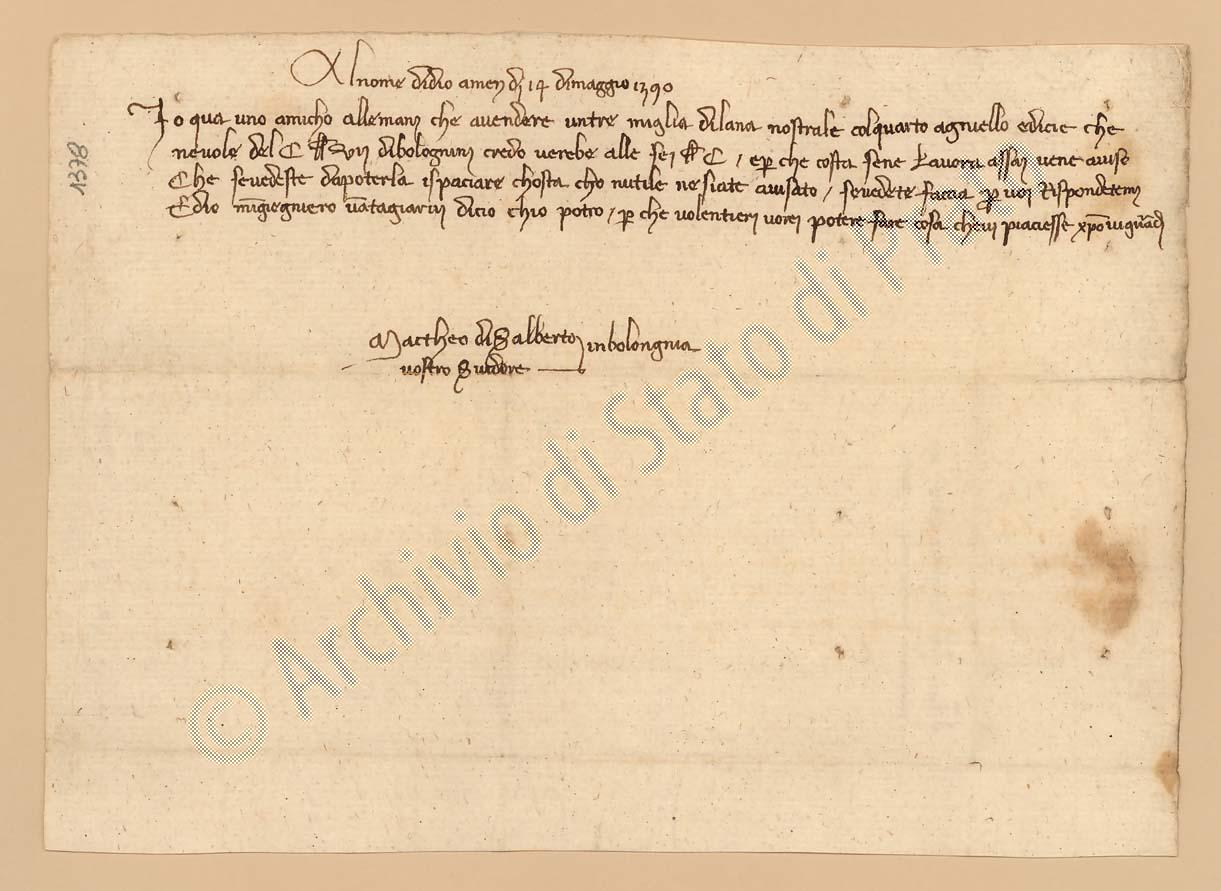 Al nome di dio amen dj 14 di maggio 1390
Io qua uno amicho alle manj che a vendere un tre miglia di lana nostrale col quarto agniello e dicie che
ne vole del C di bolognini credo verebe alle sej C / e per che costa sene lavora assaj vene aviso
Che se vedeste da poterla ispaciare chosta cho nutile ne siate avisato / se vedete facia per voi Rispondetemj
Ed io mingiegniero vantagiarvi di cio chio potro / per che volentierj vorej potere fare cosa che vi piaciesse xpo vi guardj
Mattheo di S alberto in bolongnia
vostro Svidore
1378
© Archivio di Stato di Prato